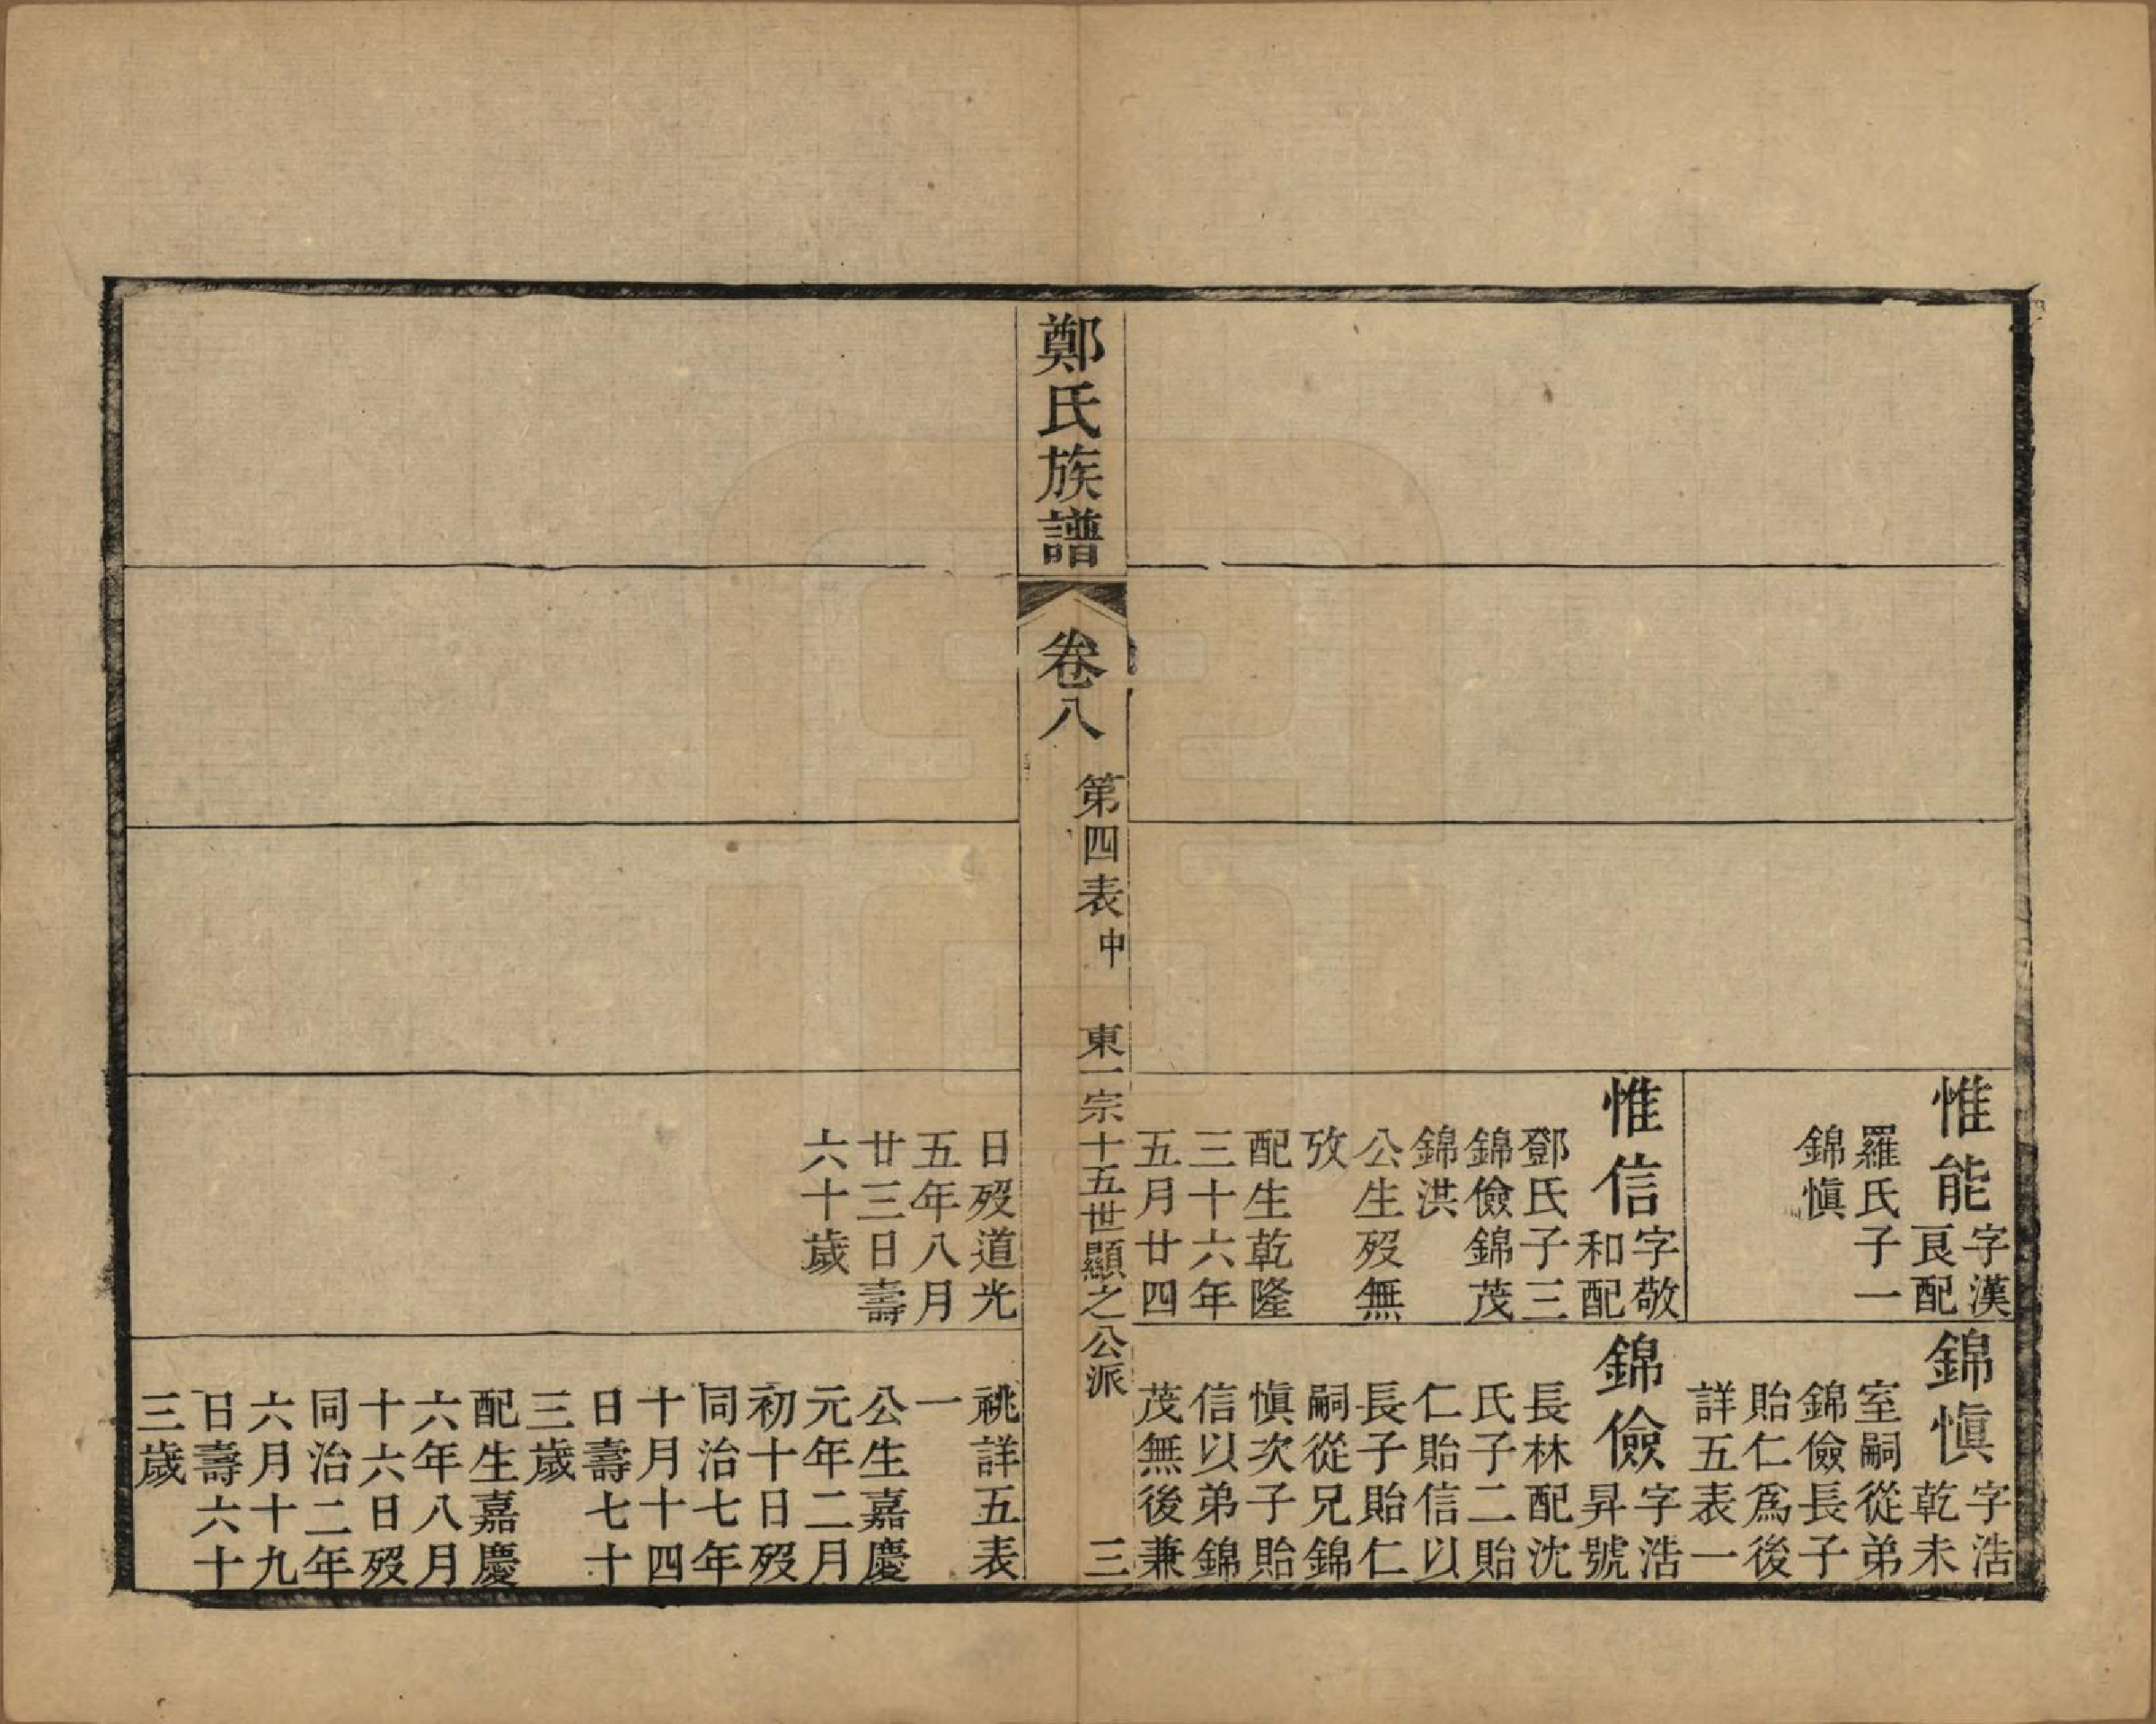 惟能字漢
艮配
羅氏子一
錦愼
惟信字敬
和配
鄧氏子三
錦儉錦茂
錦洪
公生歿無
攷
配生乾隆
三十六年
五月廿四
錦愼字浩
乾未
室嗣從弟
錦儉長子
貽仁爲後
詳五表一
錦儉字浩
昇號
長林配沈
氏子二貽
仁貽信以
長子貽仁
嗣從兄錦
愼次子貽
信以弟錦
茂無後兼
鄭氏族譜
卷八
第四表中
東一宗十五世顯之公派
三
日歿道光
五年八月
廿三日壽
六十歲
祧詳五表
一
公生嘉慶
元年二月
初十日歿
同治七年
十月十四
日壽七十
三歲
配生嘉慶
六年八月
十六日歿
同治二年
六月十九
日壽六十
三歲